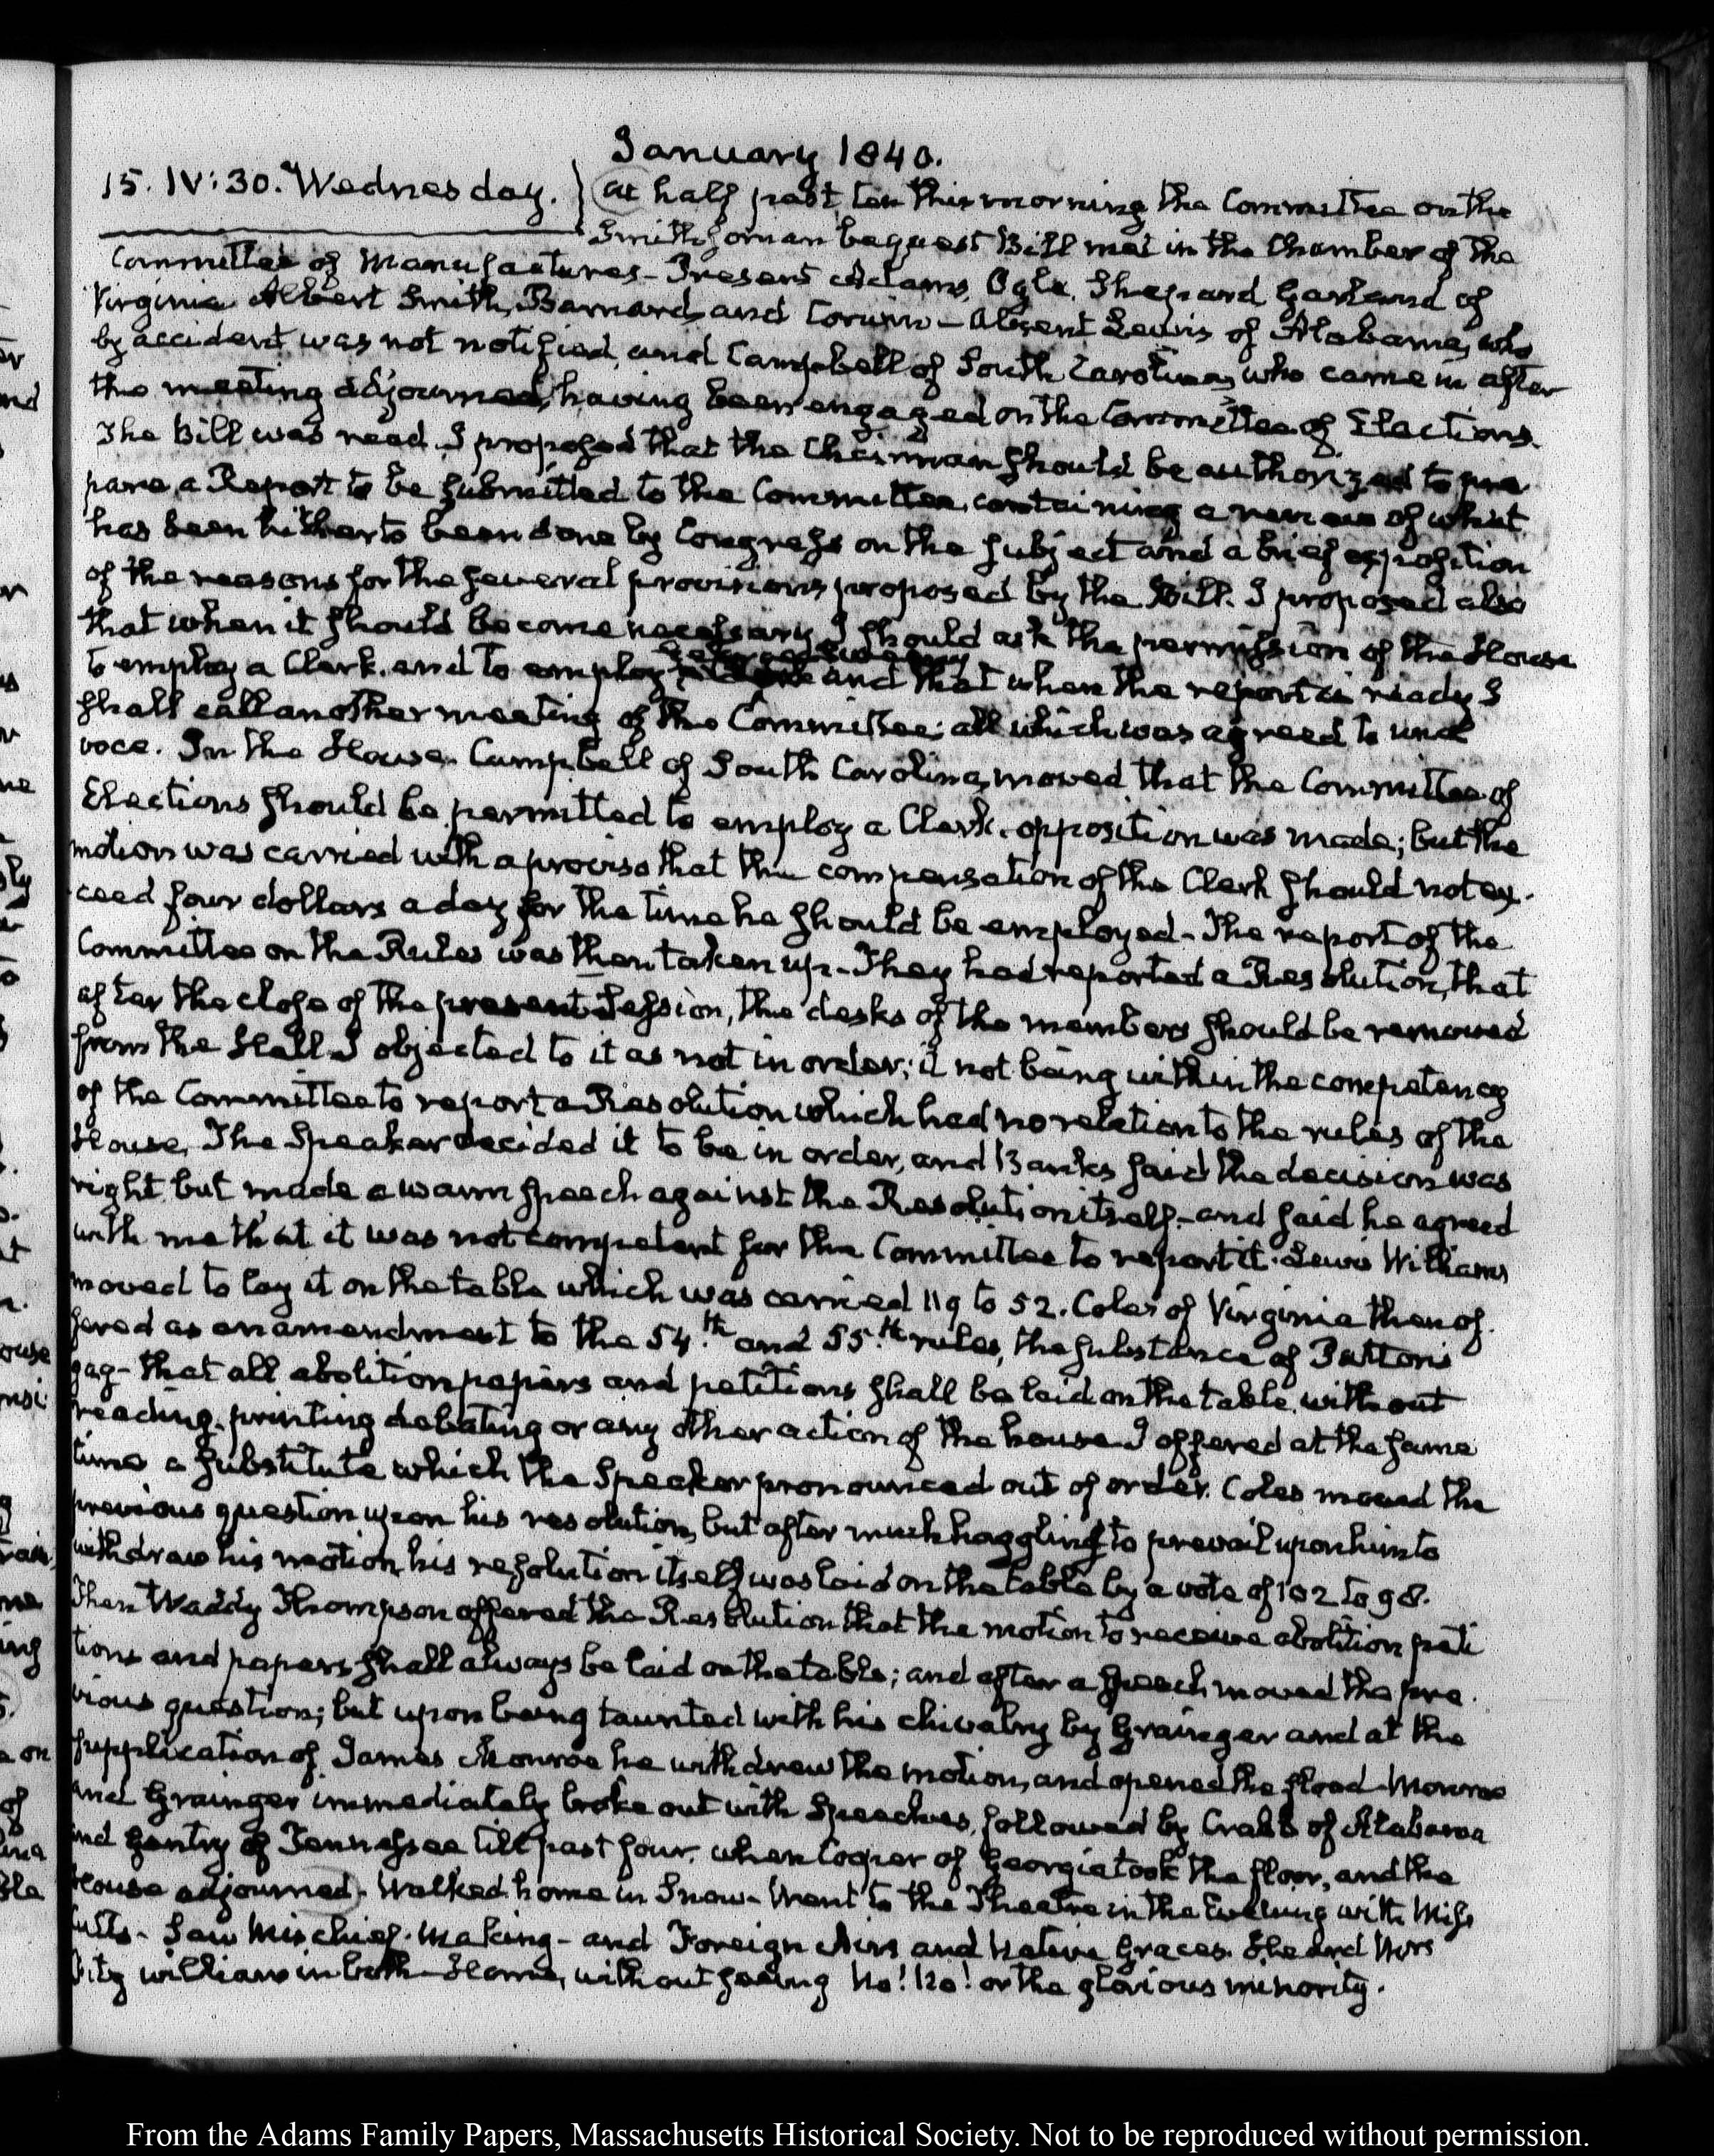 January 1840.
15. IV:30. Wednesday. } At half past ten this morning the Committee on the
Smithsonian bequest Bill met in the Chamber of the
Committee of Manufactures - Present Adams, Ogle, Shepard Garland of
Virginia Albert Smith, Barnard, and Corwin - Absent Lewis of Alabama, who
by accident was not notified, and Campbell of South Carolina, who came in after
the meeting adjourned, having been engaged on the Committee of Elections.
The Bill was read. I proposed that the Chairman should be authorized to pre
pare a Report to be submitted to the Committee, containing a review of what
has been hitherto been done by Congress on the subject and a brief exposition
of the reasons for the several provisions proposed by the Bill. I proposed also
that when it should become necessary I should ask the permission of the House
to employ a Clerk. and to employ and that when the report is ready I
shall call another meeting of the Committee; all which was agreed to una
voce. In the House. Campbell of South Carolina, moved that the Committee of
Elections should be permitted to employ a Clerk. opposition was made; but the
motion was carried with a proviso that the compensation of the Clerk should not ex-
ceed four dollars a day for the time he should be employed - The report of the
Committee on the Rules was then taken up - They had reported a Resolution, that
after the close of the present Session, the desks of the members should be removed
from the Hall. I objected to it as not in order; it not being within the competency
of the Committee to report a Resolution which had no relation to the rules of the
House. The Speaker decided it to be in order, and Banks said the decision was
right, but made a warm speech against the Resolution itself - and said he agreed
with me that it was not competent for the Committee to report it. Lewis Williams
moved to lay it on the table which was carried 119 to 52. Coles of Virginia then of-
fered as an amendment to the 54th. and 55th. rules, the substance of Patton's
gag - that all abolition papers and petitions shall be laid on the table, without
reading. printing debating or any other action of the house. I offered at the same
time a substitute which the Speaker pronounced out of order. Coles moved the
previous question upon his resolution, but after much haggling to prevail upon him to
withdraw his motion, his resolution itself was laid on the table by a vote of 102 to 98.
Then Waddy Thompson offered the Resolution that the motion to receive abolition peti
tions and papers shall always be laid on the table; and after a speech moved the pre-
vious question; but upon being taunted with his chivalry by Grainger and at the
supplication of James Monroe he withdrew the motion, and opened the flood - Monroe
and Grainger immediately broke out with Speeches, followed by Crabb of Alabama
and Gentry of Tennessee till past four. when Cooper of Georgia took the floor, and the
House adjourned. Walked home in Snow - Went to the Theatre in the Evening with Miss
Cutts - Saw Mischief-Making - and Foreign Airs and Native Graces. She and Mrs
Fitzwilliam in both - Home, without seeing No! No! or the glorious minority.
From the Adams Family Papers, Massachusetts Historical Society. Not to be reproduced without permission.